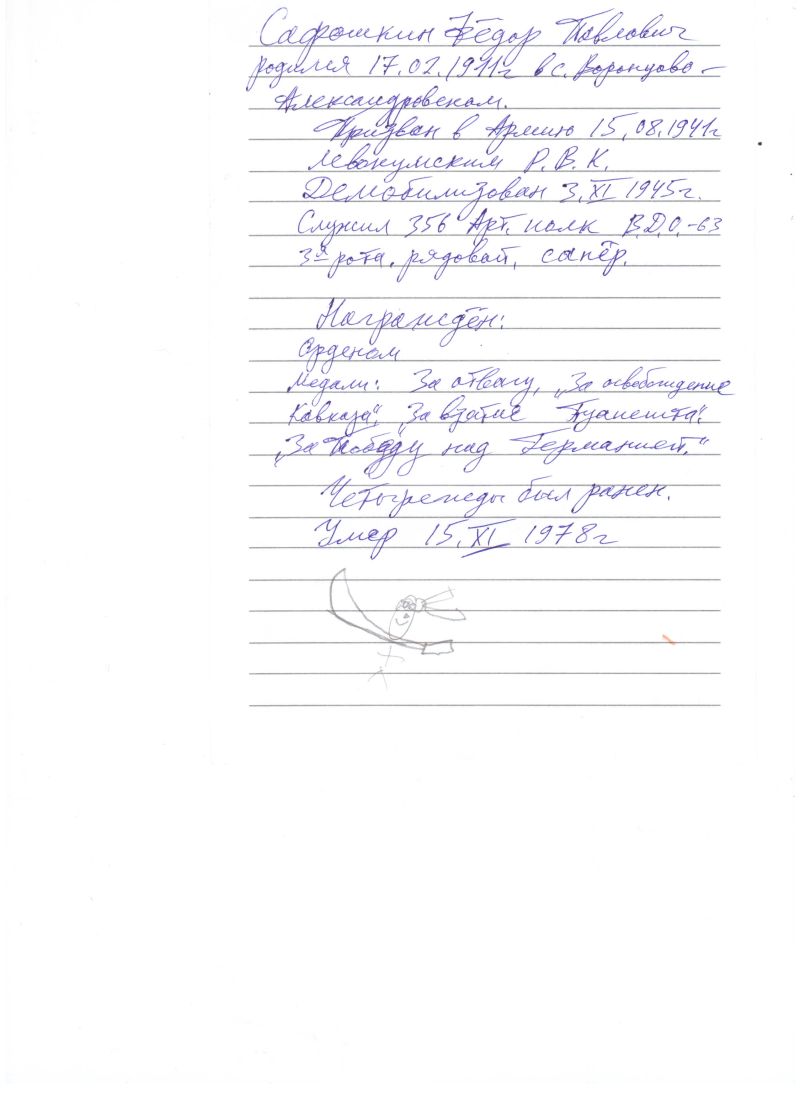 Сафошкин Фёдор Павлович
родился 17.02.1911г в с. Воронцово-
Александровском.
Призван в Армию 15.08.1941г
Левокумским Р.В.К.
Демобилизован 3.XI 1945г.
Служил 356 Арт. полк В.Д.О.-63
3я рота. рядовой, сапёр.
Награждён:
Орденом
Медали: За отвагу, „За освобождение
Кавказа", „За взятие Будапешта".
„За Победу над Германией."
Четырежды был ранен.
Умер 15.XI 1978г